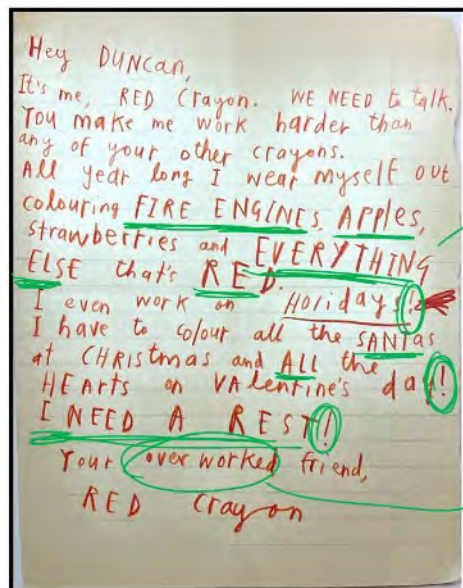 Hey DUNCan,
It's me, RED Crayon. WE NEED to talk.
You make me work harder than
any of your other crayons.
All year long I wear myself out
colouring FIRE ENGINES, APPles,
strawberries and EVERYTHING
ELSE that's RED.
I even work on Holidays!
I have to colour all the SANtas
at CHRIStmas and ALL the
HEArts on VAlentine's day!
I NEED A REST!
Your overworked friend,
RED Crayon